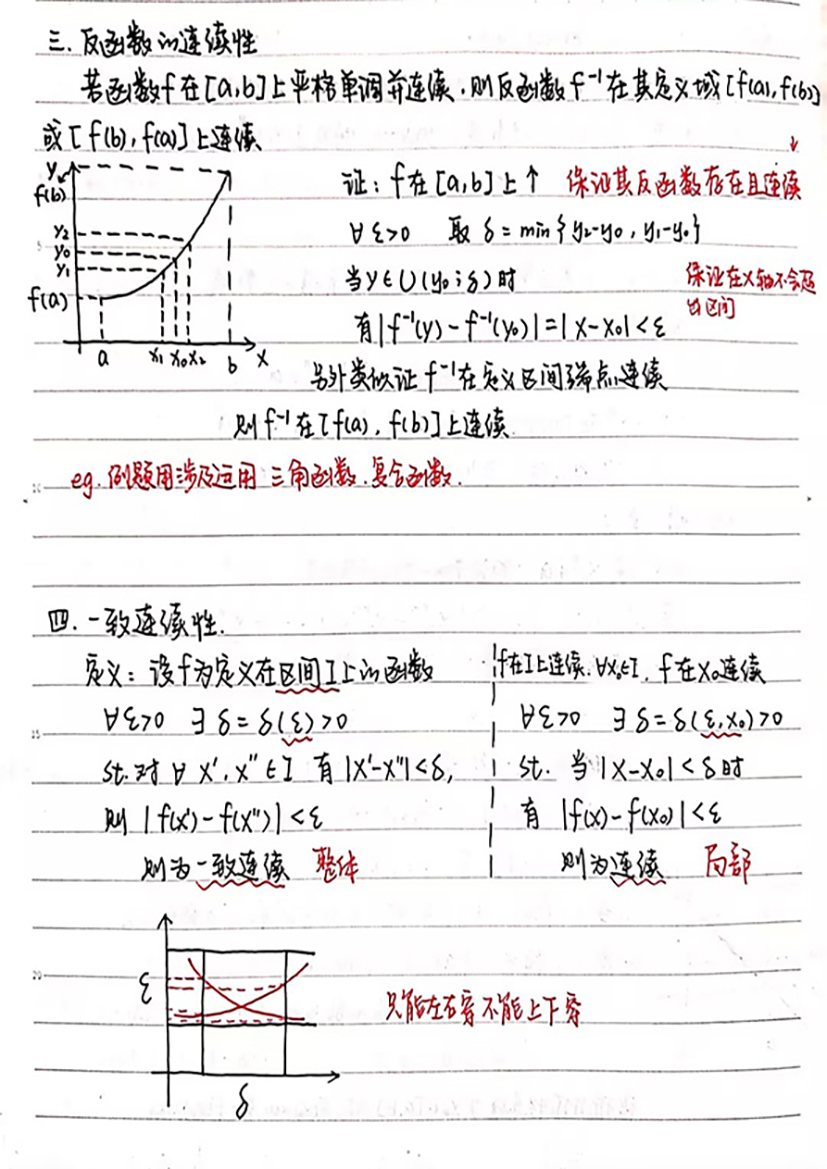 三. 反函数的连续性
若函数f在[a,b]上严格单调并连续,则反函数f⁻¹在其定义域[f(a),f(b)]
或[f(b),f(a)]上连续
y
f(b)
y₂
y₀
y₁
f(a)
a x₁ x₀ x₂ b x
证: f在[a,b]上↑ 保证其反函数存在且连续
∀ε>0 取 δ=min{y₂-y₀, y₁-y₀}
当y∈U(y₀;δ)时 保证在x轴不会超
出区间
有|f⁻¹(y)-f⁻¹(y₀)|=|x-x₀|<ε
另外类似证 f⁻¹在定义区间端点连续
则f⁻¹在[f(a),f(b)]上连续
eg. 例题用涉及运用 三角函数.复合函数.
四.一致连续性.
定义: 设f为定义在区间I上的函数
∀ε>0 ∃δ=δ(ε)>0
st.对∀ x′,x″∈I 有|x′-x″|<δ,
则|f(x′)-f(x″)|<ε
则为一致连续 整体
f在I上连续.∀x₀∈I, f在x₀连续
∀ε>0 ∃δ=δ(ε,x₀)>0
st. 当|x-x₀|<δ时
有 |f(x)-f(x₀)|<ε
则为连续 局部
ε
δ
只能左右穿不能上下穿